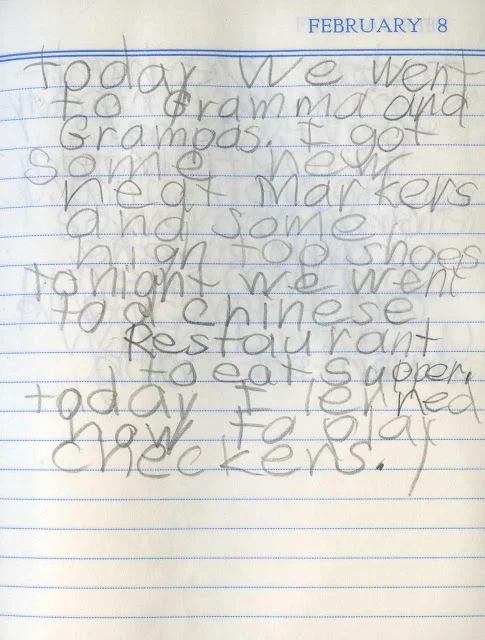 FEBRUARY 8
today We went
to Gramma and
Grampas. I got
some new
neat Markers
and some
high top shoes
tonight we went
to a chinese
Restaurant
to eat Supper.
today I lerned
how to play
checkers.